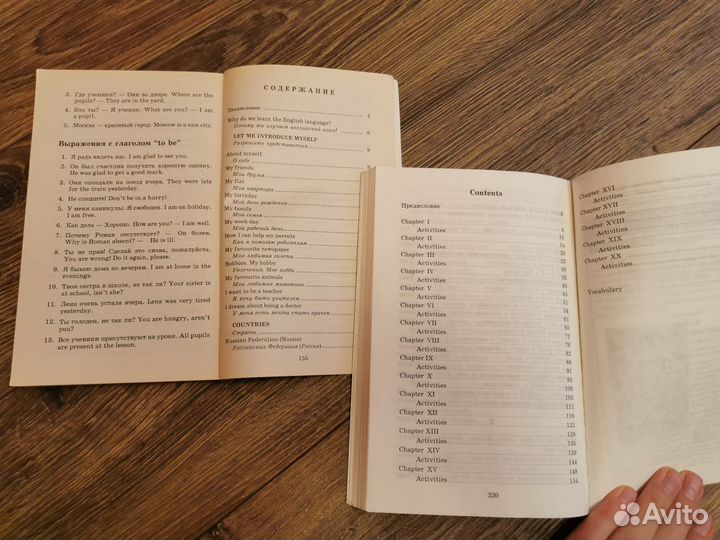 3. Где ученики? — Они во дворе. Where are the
pupils? — They are in the yard.
4. Кто ты? — Я ученик. What are you? — I am
a pupil.
5. Москва — красивый город. Moscow is a nice city.
Выражения с глаголом "to be"
1. Я рада видеть вас. I am glad to see you.
2. Он был счастлив получить хорошую оценку.
He was glad to get a good mark.
3. Они опоздали на поезд вчера. They were late
for the train yesterday.
4. Не спешите! Don't be in a hurry!
5. У меня каникулы. Я свободен. I am on holiday.
I am free.
6. Как дела — Хорошо. How are you? — I am well.
7. Почему Роман отсутствует? — Он болен.
Why is Roman absent? — He is ill.
8. Ты не прав! Сделай это снова, пожалуйста.
You are wrong! Do it again, please.
9. Я бываю дома по вечерам. I am at home in the
evenings.
10. Твоя сестра в школе, не так ли? Your sister is
at school, isn't she?
11. Лена очень устала вчера. Lena was very tired
yesterday.
12. Ты голоден, не так ли? You are hungry, aren't
you?
13. Все ученики присутствуют на уроке. All pupils
are present at the lesson.
СОДЕРЖАНИЕ
Предисловие
Why do we learn the English language?
Почему мы изучаем английский язык? 6
LET ME INTRODUCE MYSELF
Разрешите представиться 9
About myself
О себе
My friends
Мои друзья
My flat
Моя квартира
My birthday
Мой день рождения
My family
Моя семья
My week day
Мой рабочий день
How I can help my parents
Как я помогаю родителям
My favourite newspaper
Моя любимая газета
Hobbies. My hobby
Увлечения. Мое хобби
My favourite animals
Мои любимые животные
I want to be a teacher
Я хочу быть учителем
I dream about being a doctor
У меня есть мечта стать врачом
COUNTRIES
Страны
Russian Federation (Russia)
Российская Федерация (Россия)
155
Contents
Предисловие 3
Chapter I
Activities 4
Chapter II 11
Activities 14
Chapter III 20
Activities 23
Chapter IV 32
Activities 35
Chapter V
Activities
Chapter VI 51
Activities 57
Chapter VII 65
Activities 68
Chapter VIII 76
Activities 78
Chapter IX 86
Activities 91
Chapter X 95
Activities 100
Chapter XI 103
Activities 111
Chapter XII 116
Activities 122
Chapter XIII 128
Activities 135
Chapter XIV 139
Activities 144
Chapter XV 148
Activities 154
220
Chapter XVI
Activities
Chapter XVII
Activities
Chapter XVIII
Activities
Chapter XIX
Activities
Chapter XX
Activities
Vocabulary
Avito